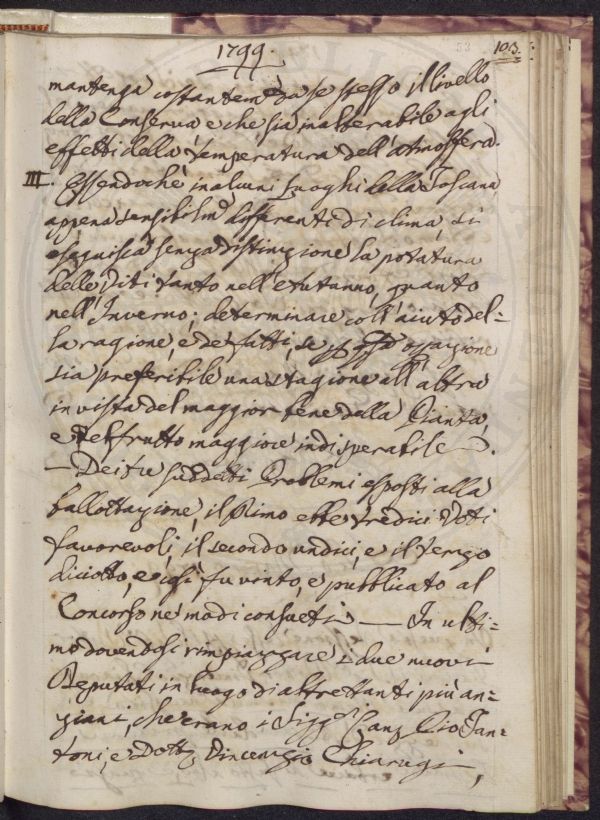 1799.
53 103.
mantenga costantem.e da se stesso il livello
della Conserva e che sia inalterabile agli
effetti della temperatura dell'atmosfera.
III. Essendochè in alcuni luoghi della Toscana
appena sensibilm.e differenti di clima, si
eseguisca senza distinzione la potatura
delle Viti tanto nell'Autunno, quanto
nell'Inverno; determinare coll'aiuto del=
la ragione, e de fatti, se per essa operazione
sia preferibile una stagione all'altra
in vista del maggior bene della Pianta,
e del frutto maggiore indisperabile.
— Dei tre suddetti Problemi esposti alla
ballottazione, il Primo ebbe tredici Voti
favorevoli, il secondo undici, e il terzo
diciotto, e così fu vinto, e pubblicato al
Concorso ne' modi consueti — In ulti=
mo dovendosi rimpiazzare i due nuovi
Deputati in luogo di altrettanti più an=
ziani, che erano i Sigg.ri Canz. Pio Fan=
toni, e Dott. Vincenzio Chiarugi,